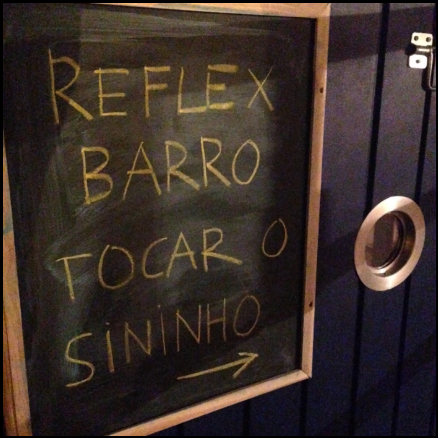 REFLEX
BARRO
TOCAR O
SiNiNHO